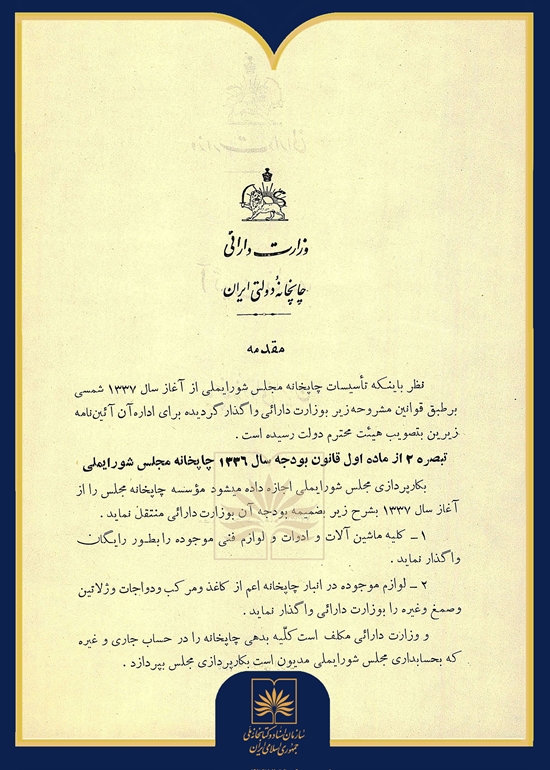 وزارت دارائی
چاپخانهٔ دولتی ایران
مقدمه
نظر باینکه تأسیسات چاپخانه مجلس شورایملی از آغاز سال ۱۳۳۷ شمسی
برطبق قوانین مشروحه زیر بوزارت دارائی واگذار گردیده برای اداره آن آئین‌نامه
زیرین بتصویب هیئت محترم دولت رسیده است .
تبصره ۲ از ماده اول قانون بودجه سال ۱۳۳۶ چاپخانه مجلس شورایملی
بکارپردازی مجلس شورایملی اجازه داده میشود مؤسسه چاپخانه مجلس را از
آغاز سال ۱۳۳۷ بشرح زیر بضمیمه بودجه آن بوزارت دارائی منتقل نماید .
۱ ــ کلیه ماشین آلات و ادوات و لوازم فنی موجوده را بطور رایگان
واگذار نماید .
۲ ــ لوازم موجوده در انبار چاپخانه اعم از کاغذ ومرکب ودواجات وژلاتین
وصمغ وغیره را بوزارت دارائی واگذار نماید .
و وزارت دارائی مکلف است کلّیه بدهی چاپخانه را در حساب جاری و غیره
که بحسابداری مجلس شورایملی مدیون است بکارپردازی مجلس بپردازد .
سازمان اسناد و کتابخانه ملی
جمهوری اسلامی ایران